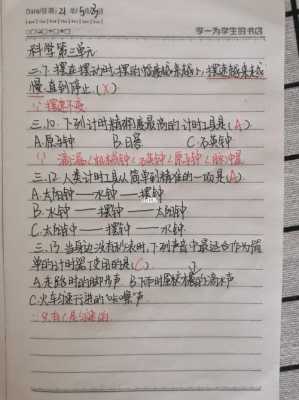 Date/日期: 21 年5月23日
学一为学生的书店
科学第三单元
二.7.摆在摆动时,摆的幅度越来越小,摆速越来越
慢,直到停止(X)
摆速不变
三.10.下列计时精确度最高的计时工具是(A)
A.原子钟 B.日晷 C.石英钟
三.12.人类计时工具从简单到精准的一项是(A)
A.太阳钟——水钟——摆钟
B.水钟——摆钟——太阳钟
C.太阳钟——摆钟——水钟
三.13.当身边没有钟表时,下列声音中最适合作为简
单的计时器使用的是(C)
A.走路时的脚步声 B.下雨时屋檐的滴水声
C.火车匀速行进的"咔嚓"声
只有C是匀速的